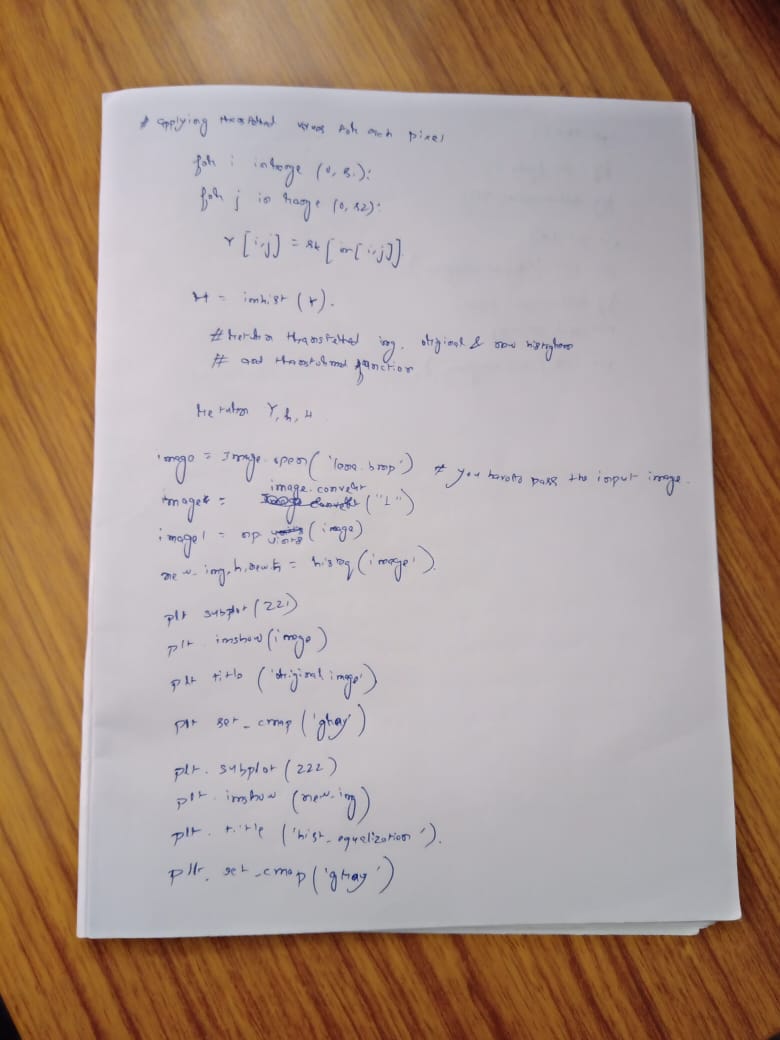 # applying transfered values for each pixel
for i in range (0, s1):
for j in range (0, s2):
Y [i,j] = sk [ im[i,j]]
H = imhist (Y).
# return transfered img, original & new histogram
# and transformed function
return Y, h, H
image = Image. open( 'lena. bmp') # you have to pass the input image.
image = image. convert ("L")
image1 = np (image)
new_img, h, new h = histeq (image1).
plt subplot (221)
plt . imshow (image)
plt title ( 'original image')
plt set_cmap ('gray')
plt. subplot (222)
plt . imshow (new_img)
plt. title ('hist_equalization').
plt. set_cmap ('gray')